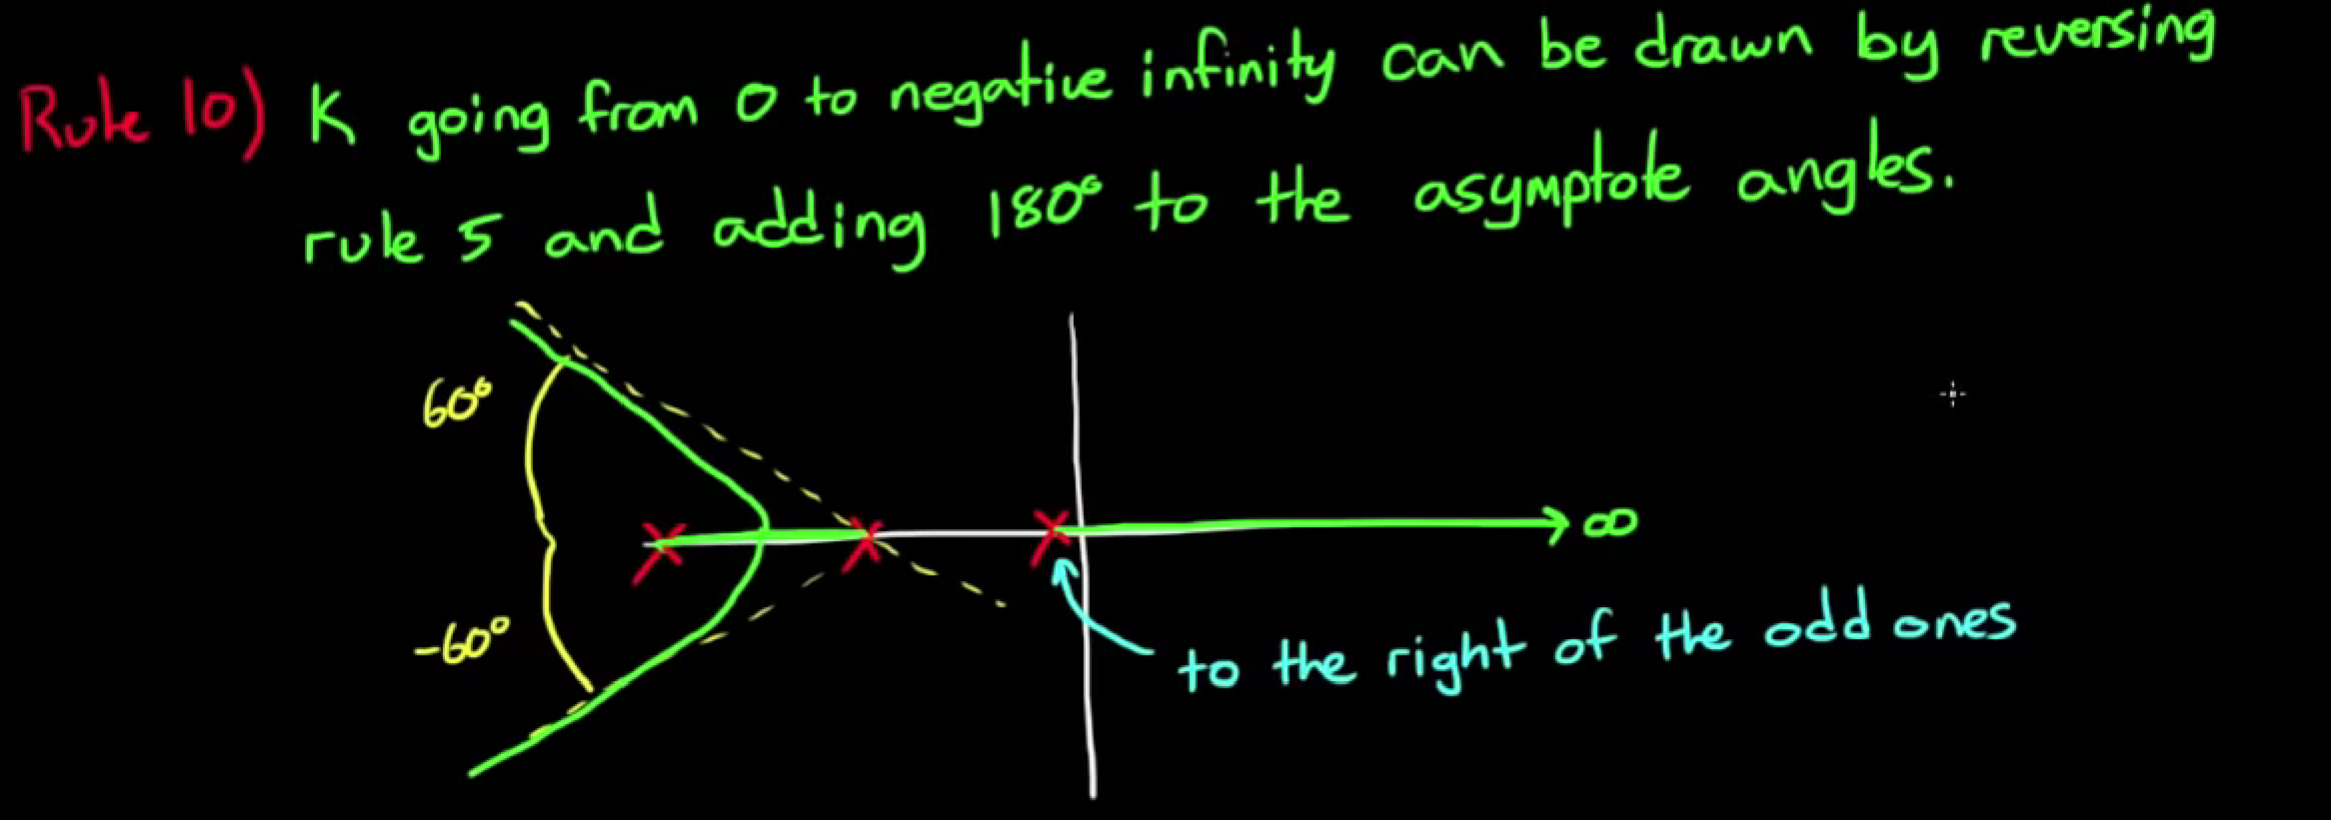 Rule 10) K going from 0 to negative infinity can be drawn by reversing
rule 5 and adding 180° to the asymptote angles.
60°
∞
-60°
to the right of the odd ones